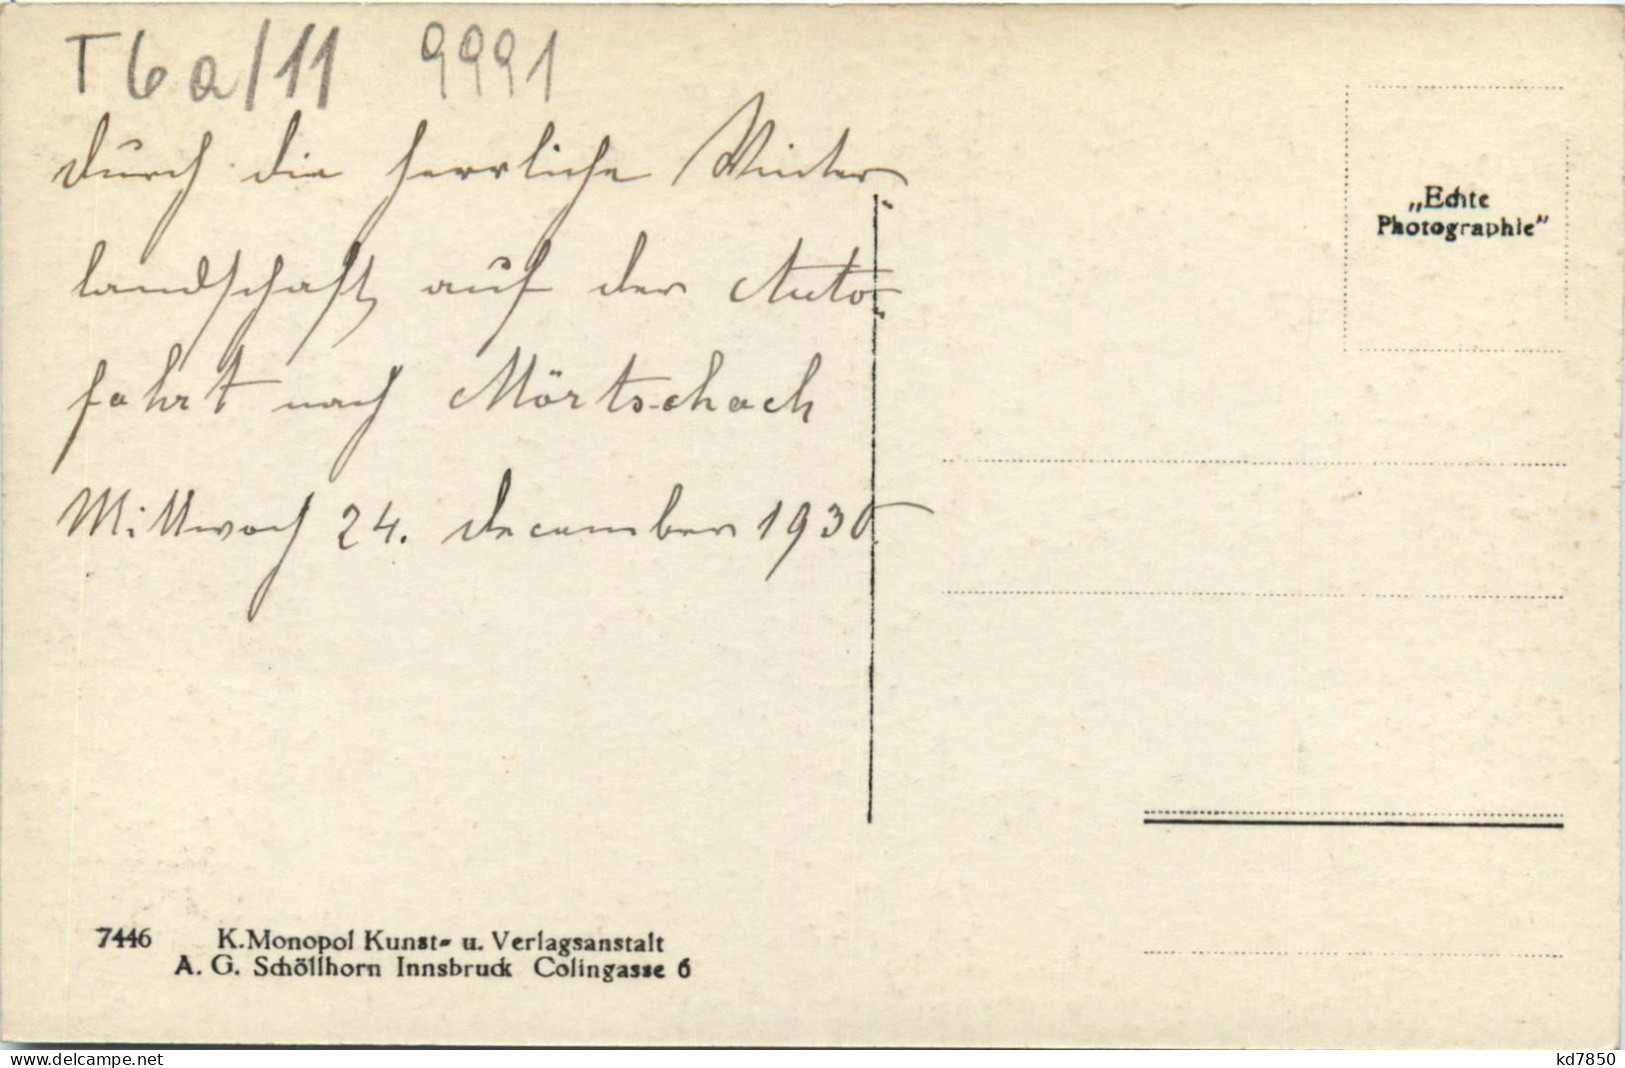 T 6 a/11 9991
durch die herrliche Winter-
landschaft auf der Auto-
fahrt nach Mörtschach
Mittwoch 24. December 1930
„Echte
Photographie"
7446 K. Monopol Kunst- u. Verlagsanstalt
A. G. Schöllhorn Innsbruck Colingasse 6
www.delcampe.net
kd7850